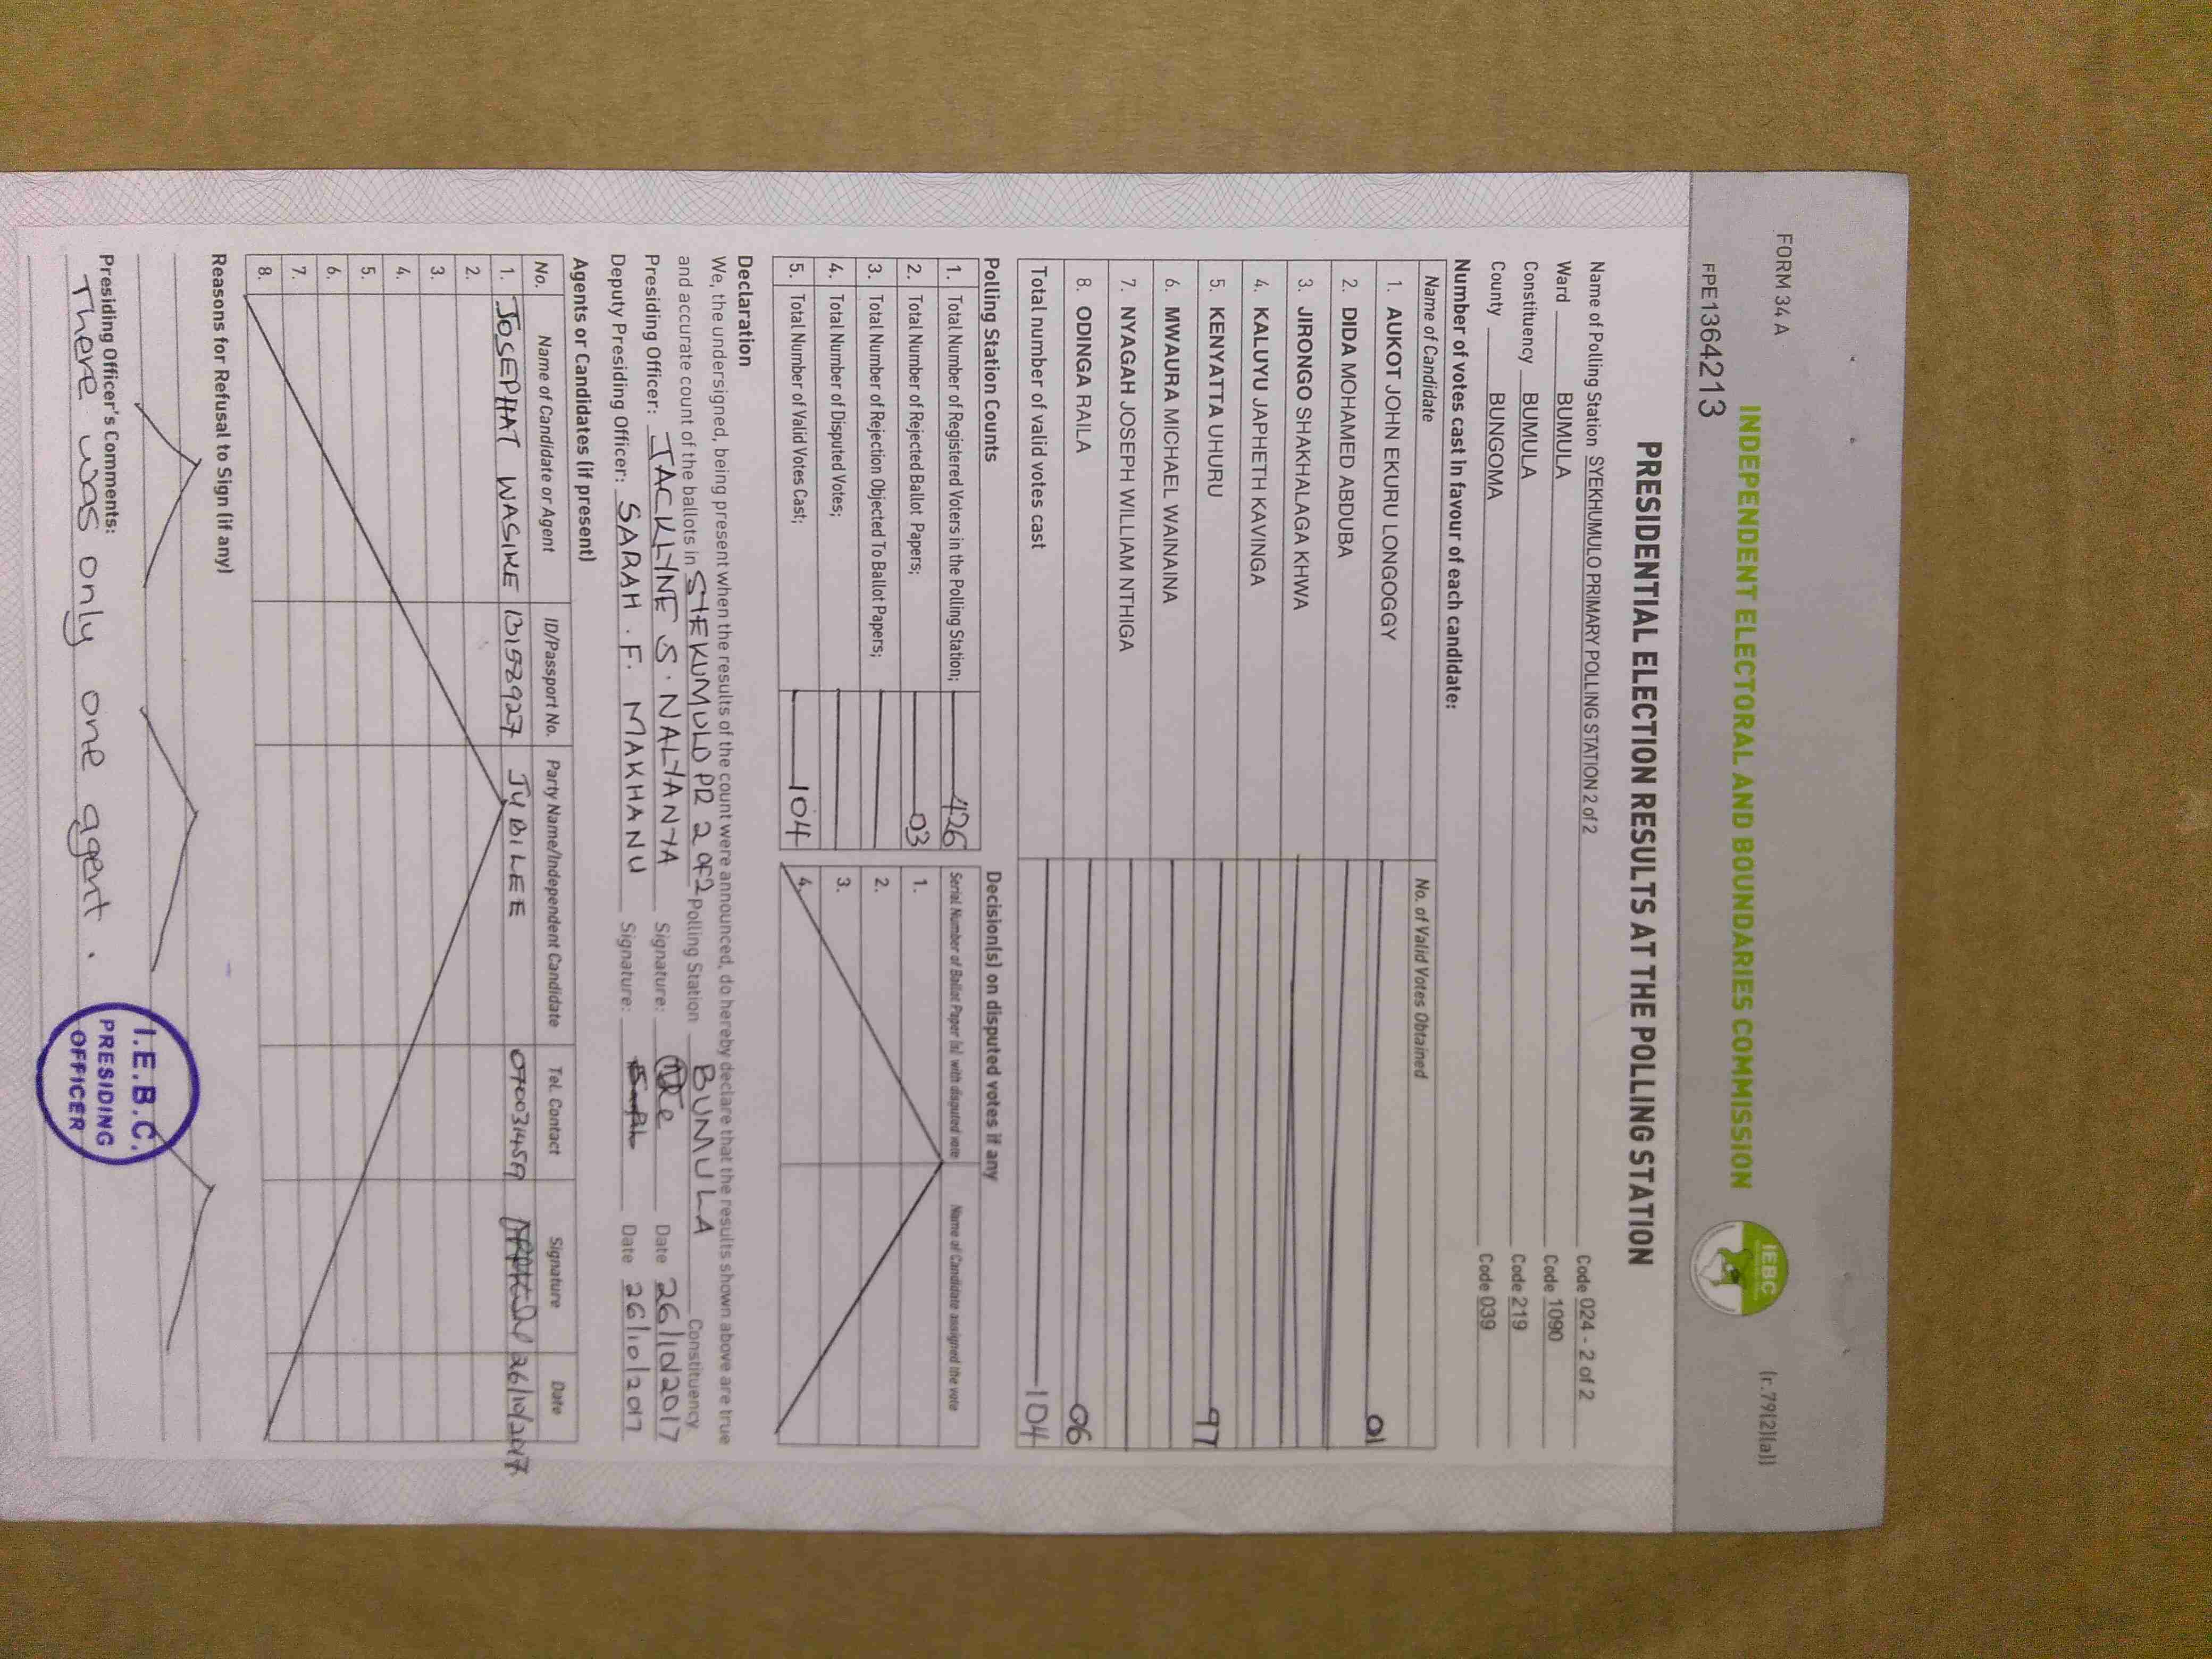 FORM 34 A
(r.79(2)(a))
INDEPENDENT ELECTORAL AND BOUNDARIES COMMISSION
IEBC
FPE1364213
PRESIDENTIAL ELECTION RESULTS AT THE POLLING STATION
Name of Polling Station SYEKHUMULO PRIMARY POLLING STATION 2 of 2 Code 024 - 2 of 2
Ward BUMULA Code 1090
Constituency BUMULA Code 219
County BUNGOMA Code 039
Number of votes cast in favour of each candidate:
Name of Candidate No. of Valid Votes Obtained
1. AUKOT JOHN EKURU LONGOGGY 01
2. DIDA MOHAMED ABDUBA
3. JIRONGO SHAKHALAGA KHWA
4. KALUYU JAPHETH KAVINGA
5. KENYATTA UHURU 97
6. MWAURA MICHAEL WAINAINA
7. NYAGAH JOSEPH WILLIAM NTHIGA
8. ODINGA RAILA 06
Total number of valid votes cast 104
Polling Station Counts
1. Total Number of Registered Voters in the Polling Station; 426
2. Total Number of Rejected Ballot Papers; 03
3. Total Number of Rejection Objected To Ballot Papers;
4. Total Number of Disputed Votes;
5. Total Number of Valid Votes Cast; 104
Decision(s) on disputed votes if any
Serial Number of Ballot Paper (s) with disputed vote Name of Candidate assigned the vote
1.
2.
3.
4.
Declaration
We, the undersigned, being present when the results of the count were announced, do hereby declare that the results shown above are true
and accurate count of the ballots in SYEKUMULO PR 2 OF 2 Polling Station BUMULA Constituency
Presiding Officer: JACKLYNE S. NALYANYA Signature: Date 26/10/2017
Deputy Presiding Officer: SARAH . F. MAKHANU Signature: Date 26/10/2017
Agents or Candidates (if present)
No. Name of Candidate or Agent ID/Passport No. Party Name/Independent Candidate Tel. Contact Signature Date
1. JOSEPHAT WASIKE 13152927 JUBILEE 26/10/2017
2.
3.
4.
5.
6.
7.
8.
Reasons for Refusal to Sign (if any)
Presiding Officer's Comments:
There was only one agent.
I.E.B.C.
PRESIDING
OFFICER